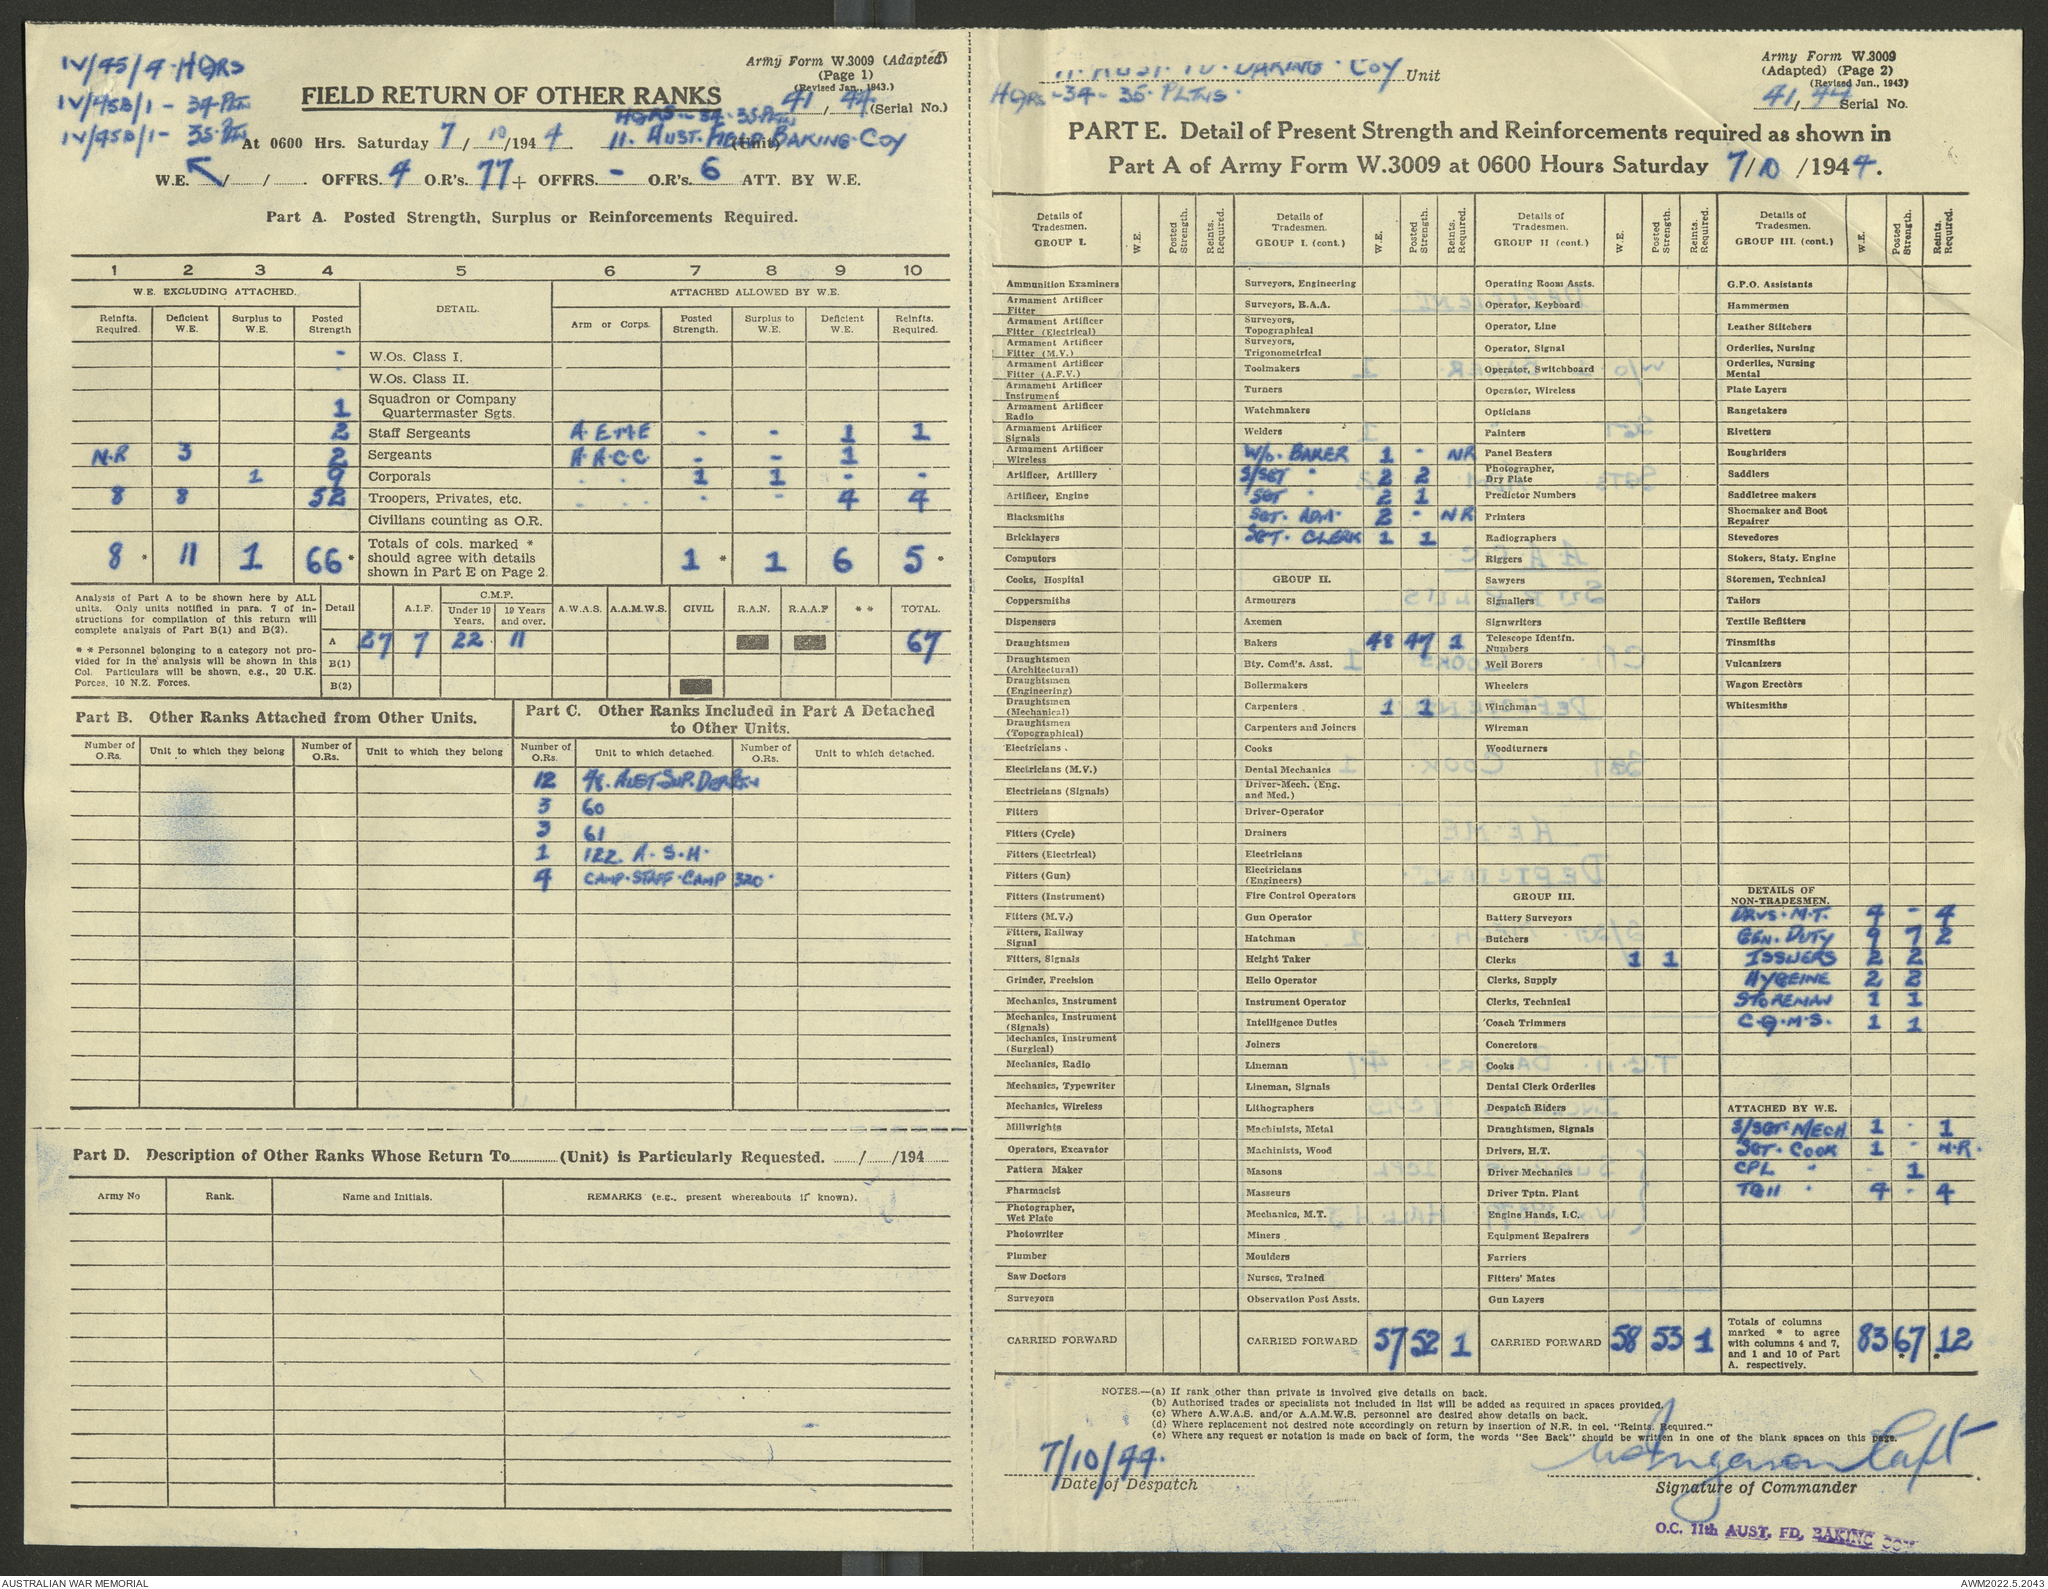 IV/45/4-HQRS
IV/45B/1- 34-PLTN
IV/45B/1- 35-PLTN
Army Form W.3009 (Adapted)
(Page 1)
(Revised Jan., 1943.)
41 / 44 (Serial No.)
FIELD RETURN OF OTHER RANKS
HQRS - 34 - 35 PLTN
At 0600 Hrs. Saturday 7 / 10 /194 4. 11. AUST. FIELD BAKING. COY (Unit)
W.E. / / OFFRS. 4 O.R's. 77 + OFFRS. - O.R's. 6 ATT. BY W.E.
Part A. Posted Strength, Surplus or Reinforcements Required.
1 2 3 4 5 6 7 8 9 10
W.E. EXCLUDING ATTACHED. DETAIL. ATTACHED ALLOWED BY W.E.
Reinfts. Required. Deficient W.E. Surplus to W.E. Posted Strength Arm or Corps. Posted Strength. Surplus to W.E. Deficient W.E. Reinfts. Required.
- W.Os. Class I.
- W.Os. Class II.
1 Squadron or Company Quartermaster Sgts.
2 Staff Sergeants A.E.M.E - - 1 1
N.R 3 2 Sergeants A.A.C.C - - 1
1 9 Corporals . . 1 1 - -
8 8 52 Troopers, Privates, etc. . . - - 4 4
Civilians counting as O.R.
8 * 11 1 66 * Totals of cols. marked * should agree with details shown in Part E on Page 2. 1 * 1 6 5 *
Analysis of Part A to be shown here by ALL units. Only units notified in para. 7 of instructions for compilation of this return will complete analysis of Part B(1) and B(2).
* * Personnel belonging to a category not provided for in the analysis will be shown in this Col. Particulars will be shown, e.g., 20 U.K. Forces, 10 N.Z. Forces.
Detail A.I.F. C.M.F. Under 19 Years. 19 Years and over. A.W.A.S. A.A.M.W.S. CIVIL R.A.N. R.A.A.F * * TOTAL.
A 27 7 22 11 67
B(1)
B(2)
Part B. Other Ranks Attached from Other Units.
Number of O.Rs. Unit to which they belong Number of O.Rs. Unit to which they belong
Part C. Other Ranks Included in Part A Detached to Other Units.
Number of O.Rs. Unit to which detached. Number of O.Rs. Unit to which detached.
12 48. AUST. SUP. DEP. PLTN
3 60
3 61
1 122. A.S.H.
4 CAMP. STAFF. CAMP 320.
Part D. Description of Other Ranks Whose Return To (Unit) is Particularly Requested. / /194
Army No Rank. Name and Initials. REMARKS (e.g., present whereabouts if known).
11. AUST. FD. BAKING. COY Unit
HQRS - 34 - 35. PLTNS.
Army Form W.3009
(Adapted) (Page 2)
(Revised Jan., 1943)
41 / 44 Serial No.
PART E. Detail of Present Strength and Reinforcements required as shown in
Part A of Army Form W.3009 at 0600 Hours Saturday 7/10 /1944.
Details of Tradesmen. GROUP I. W.E. Posted Strength. Reints. Required.
Ammunition Examiners
Armament Artificer Fitter
Armament Artificer Fitter (Electrical)
Armament Artificer Fitter (M.V.)
Armament Artificer Fitter (A.F.V.)
Armament Artificer Instrument
Armament Artificer Radio
Armament Artificer Signals
Armament Artificer Wireless
Artificer, Artillery
Artificer, Engine
Blacksmiths
Bricklayers
Computors
Cooks, Hospital
Coppersmiths
Dispensers
Draughtsmen
Draughtsmen (Architectural)
Draughtsmen (Engineering)
Draughtsmen (Mechanical)
Draughtsmen (Topographical)
Electricians
Electricians (M.V.)
Electricians (Signals)
Fitters
Fitters (Cycle)
Fitters (Electrical)
Fitters (Gun)
Fitters (Instrument)
Fitters (M.V.)
Fitters, Railway Signal
Fitters, Signals
Grinder, Precision
Mechanics, Instrument
Mechanics, Instrument (Signals)
Mechanics, Instrument (Surgical)
Mechanics, Radio
Mechanics, Typewriter
Mechanics, Wireless
Millwrights
Operators, Excavator
Pattern Maker
Pharmacist
Photographer, Wet Plate
Photowriter
Plumber
Saw Doctors
Surveyors
CARRIED FORWARD
Details of Tradesmen. GROUP I. (cont.) W.E. Posted Strength. Reints. Required.
Surveyors, Engineering
Surveyors, R.A.A.
Surveyors, Topographical
Surveyors, Trigonometrical
Toolmakers
Turners
Watchmakers
Welders
W/O. BAKER 1 - NR
S/SGT " 2 2
SGT " 2 1
SGT. ADM. 2 - NR
SGT. CLERK 1 1
GROUP II.
Armourers
Axemen
Bakers 48 47 1
Bty. Comd's. Asst.
Boilermakers
Carpenters 1 1
Carpenters and Joiners
Cooks
Dental Mechanics
Driver-Mech. (Eng. and Med.)
Driver-Operator
Drainers
Electricians
Electricians (Engineers)
Fire Control Operators
Gun Operator
Hatchman
Height Taker
Helio Operator
Instrument Operator
Intelligence Duties
Joiners
Lineman
Lineman, Signals
Lithographers
Machinists, Metal
Machinists, Wood
Masons
Masseurs
Mechanics, M.T.
Miners
Moulders
Nurses, Trained
Observation Post Assts.
CARRIED FORWARD 57 52 1
Details of Tradesmen. GROUP II (cont.) W.E. Posted Strength. Reints. Required.
Operating Room Assts.
Operator, Keyboard
Operator, Line
Operator, Signal
Operator, Switchboard
Operator, Wireless
Opticians
Painters
Panel Beaters
Photographer, Dry Plate
Predictor Numbers
Printers
Radiographers
Riggers
Sawyers
Signallers
Signwriters
Telescope Identfn. Numbers
Well Borers
Wheelers
Winchman
Wireman
Woodturners
GROUP III.
Battery Surveyors
Butchers
Clerks 1 1
Clerks, Supply
Clerks, Technical
Coach Trimmers
Concretors
Cooks
Dental Clerk Orderlies
Despatch Riders
Draughtsmen, Signals
Drivers, H.T.
Driver Mechanics
Driver Tptn. Plant
Engine Hands, I.C.
Equipment Repairers
Farriers
Fitters' Mates
Gun Layers
CARRIED FORWARD 58 53 1
Details of Tradesmen. GROUP III. (cont.) W.E. Posted Strength. Reints. Required.
G.P.O. Assistants
Hammermen
Leather Stitchers
Orderlies, Nursing
Orderlies, Nursing Mental
Plate Layers
Rangetakers
Rivetters
Roughriders
Saddlers
Saddletree makers
Shoemaker and Boot Repairer
Stevedores
Stokers, Staty. Engine
Storemen, Technical
Tailors
Textile Refitters
Tinsmiths
Vulcanizers
Wagon Erectors
Whitesmiths
DETAILS OF NON-TRADESMEN.
DRVS. M.T. 4 - 4
GEN. DUTY 9 7 2
ISSUERS 2 2
HYGEINE 2 2
STOREMAN 1 1
C.Q.M.S. 1 1
ATTACHED BY W.E.
S/SGT. MECH 1 - 1
SGT. COOK 1 - N.R.
CPL " 1
TGII " 4 - 4
Totals of columns marked * to agree with columns 4 and 7, and 1 and 10 of Part A. respectively. 83 67 * 12 *
NOTES.—(a) If rank other than private is involved give details on back.
(b) Authorised trades or specialists not included in list will be added as required in spaces provided.
(c) Where A.W.A.S. and/or A.A.M.W.S. personnel are desired show details on back.
(d) Where replacement not desired note accordingly on return by insertion of N.R. in col. "Reints. Required."
(e) Where any request or notation is made on back of form, the words "See Back" should be written in one of the blank spaces on this page.
7/10/44.
Date of Despatch
Capt
Signature of Commander
O.C. 11th AUST. FD. BAKING COY
AUSTRALIAN WAR MEMORIAL
AWM2022.5.2043